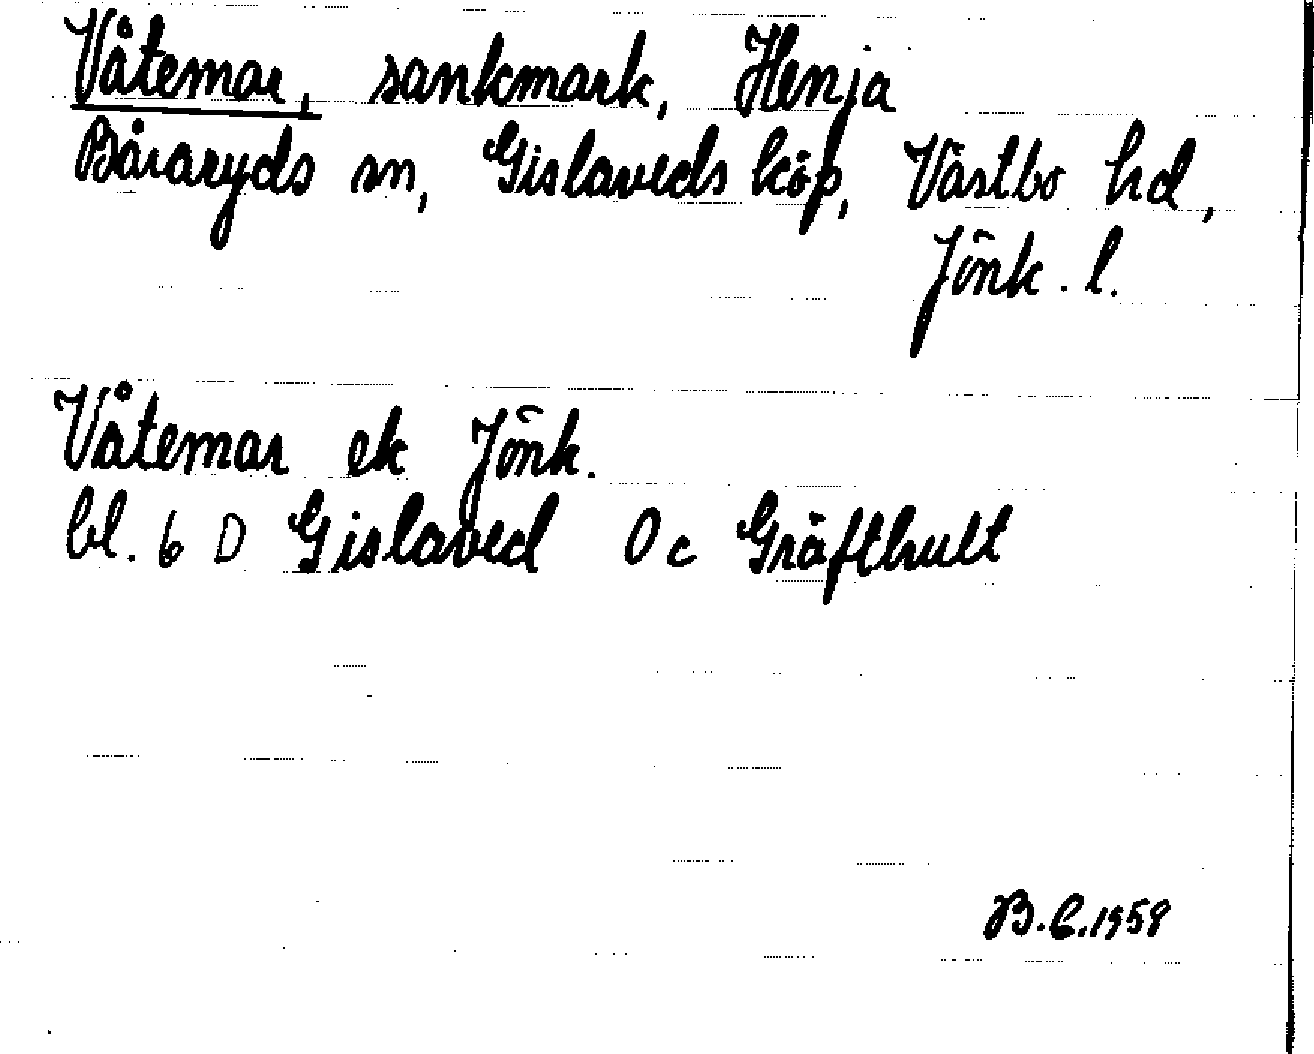 Våtemar, sankmark, Henja
Båraryds sn, Gislaveds köp, Västbo hd,
Jönk. l.
Våtemar ek Jönk.
bl. 6 D Gislaved 0 c Gräfthult
B.E.1958